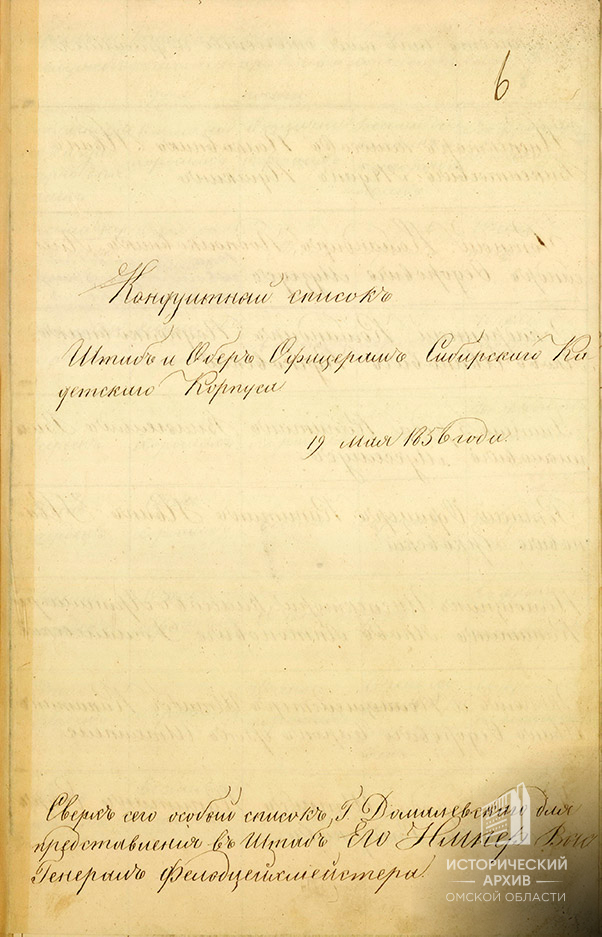 6
Кондуитный списокъ
Штабъ и Оберъ Офицерамъ Сибирскаго Ка-
детскаго Корпуса
19 мая 1856 года.
Сверхъ сего особый списокъ Г. Домалевскаго для
представленія въ Штабъ Его Импер
Генералъ Фельдцейхмейстера.
ИСТОРИЧЕСКИЙ
АРХИВ
ОМСКОЙ ОБЛАСТИ